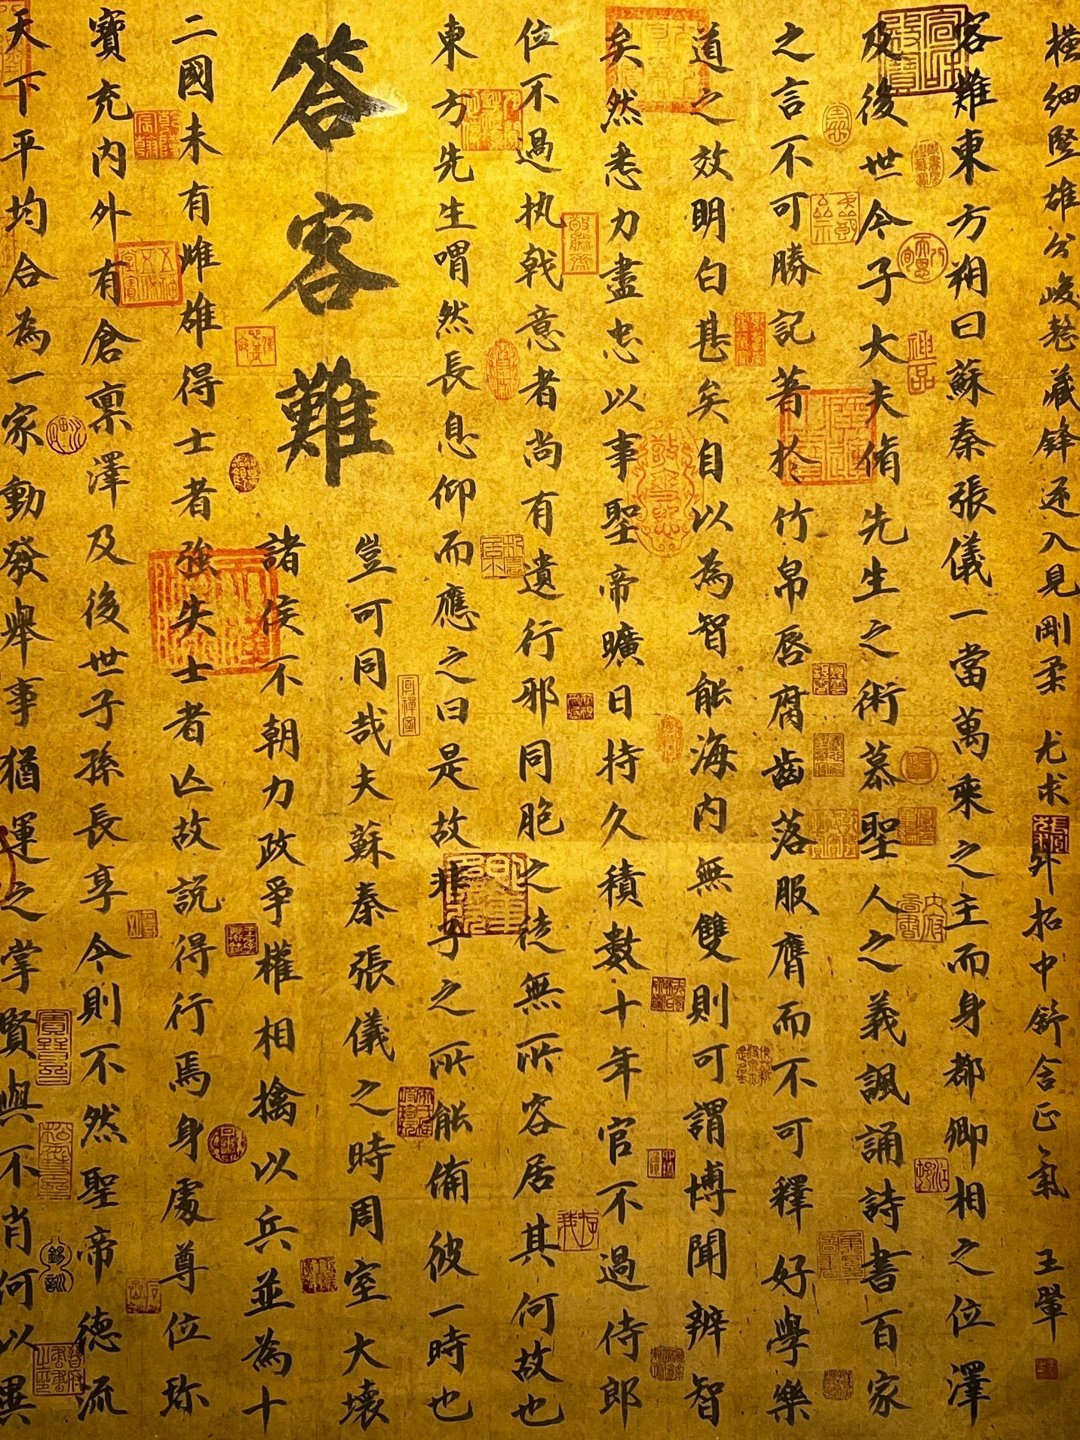 横细竖雄分峻整藏锋逐入見剛柔尤求舛拓中舒含正氣 王肇
客難東方朔曰蘇秦張儀一當萬乘之主而身都卿相之位澤
及後世今子大夫脩先生之術慕聖人之義諷誦詩書百家
之言不可勝記著於竹帛唇腐齒落服膺而不可釋好學樂
道之效明白甚矣自以為智能海内無雙則可謂博聞辨智
矣然悉力盡忠以事聖帝曠日持久積數十年官不過侍郎
位不過执戟意者尚有遺行邪同胞之徒無所容居其何故也
東方先生喟然長息仰而應之曰是故非子之所能備彼一時也
豈可同哉夫蘇秦張儀之時周室大壊
答客難
諸侯不朝力政爭權相擒以兵並為十
二國未有雌雄得士者強失士者亡故説得行焉身處尊位珎
寶充内外有倉禀澤及後世子孫長享今則不然聖帝德流
天下平均合為一家動發舉事猶運之掌賢與不肖何以異